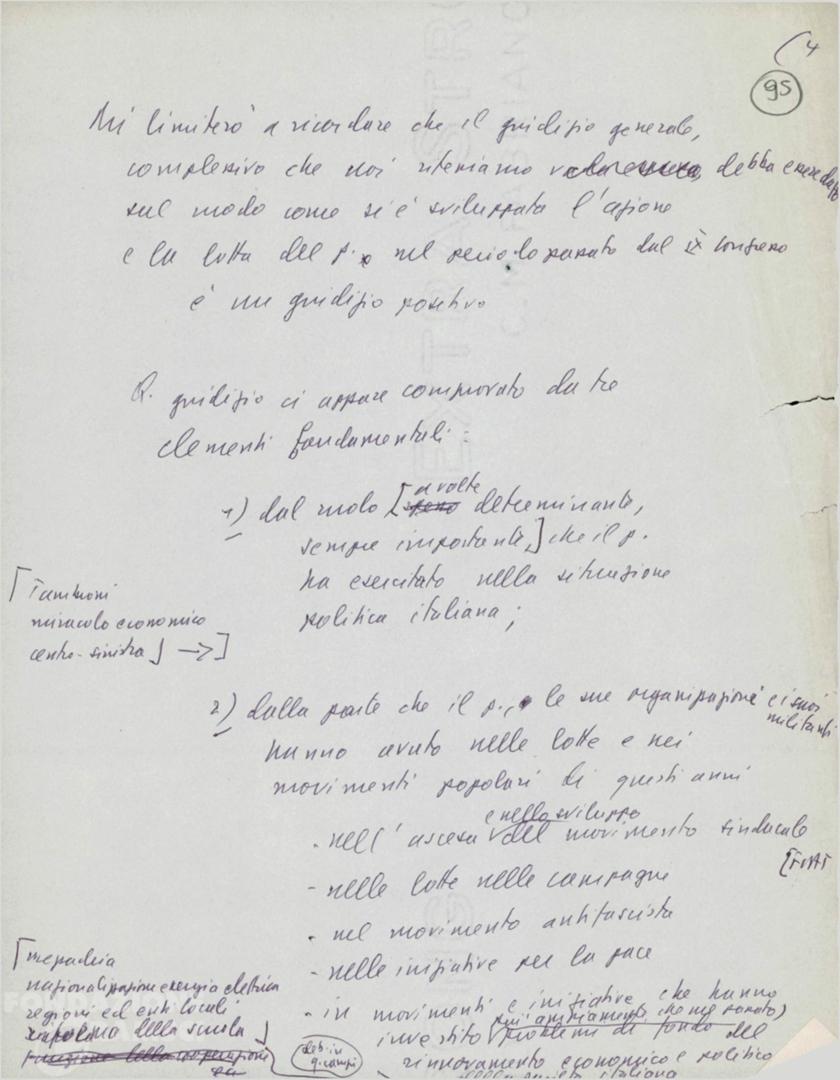 (4
95
Mi limiterò a ricordare che il giudizio generale,
complessivo che noi riteniamo debba essere dato
sul modo come si è sviluppata l'azione
e la lotta del p. nel periodo passato dal IX congresso
è un giudizio positivo
Q. giudizio ci appare comprovato da tre
elementi fondamentali:
a volte
1) dal ruolo [spesso determinante,
sempre importante,] che il p.
ha esercitato nella situazione
politica italiana;
[Tambroni
miracolo economico
centro-sinistra] →]
2) dalla parte che il p., le sue organizzazioni e i suoi
militanti
hanno avuto nelle lotte e nei
movimenti popolari di questi anni
e nello sviluppo
- nell'ascesa del movimento sindacale
[FIAT
- nelle lotte nelle campagne
- nel movimento antifascista
- nelle iniziative per la pace
- in movimenti e iniziative che hanno
investito (più ampiamente che nel passato)
problemi di fondo del
rinnovamento economico e politico
della società italiana
[mezzadria
nazionalizzazione energia elettrica
regioni ed enti locali
riforma della scuola]
funzione della cooperazione
deb. in
q. campi